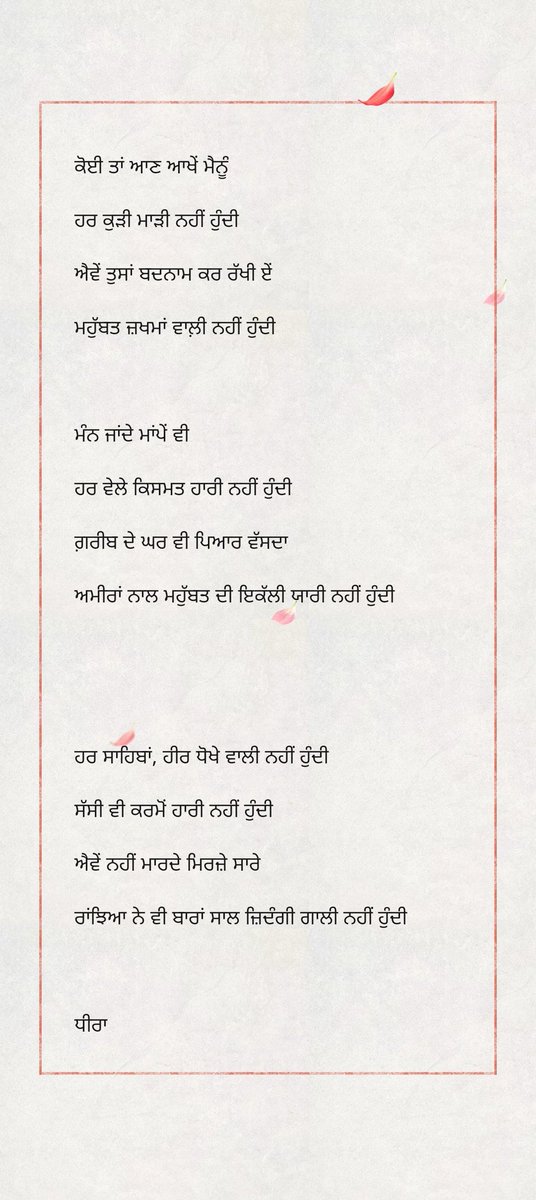 ਕੋਈ ਤਾਂ ਆਣ ਆਖੇਂ ਮੈਨੂੰ
ਹਰ ਕੁੜੀ ਮਾੜੀ ਨਹੀਂ ਹੁੰਦੀ
ਐਵੇਂ ਤੁਸਾਂ ਬਦਨਾਮ ਕਰ ਰੱਖੀ ਏਂ
ਮਹੁੱਬਤ ਜ਼ਖਮਾਂ ਵਾਲ਼ੀ ਨਹੀਂ ਹੁੰਦੀ
ਮੰਨ ਜਾਂਦੇ ਮਾਂਪੇਂ ਵੀ
ਹਰ ਵੇਲੇ ਕਿਸਮਤ ਹਾਰੀ ਨਹੀਂ ਹੁੰਦੀ
ਗ਼ਰੀਬ ਦੇ ਘਰ ਵੀ ਪਿਆਰ ਵੱਸਦਾ
ਅਮੀਰਾਂ ਨਾਲ ਮਹੁੱਬਤ ਦੀ ਇਕੱਲੀ ਯਾਰੀ ਨਹੀਂ ਹੁੰਦੀ
ਹਰ ਸਾਹਿਬਾਂ, ਹੀਰ ਧੋਖੇ ਵਾਲੀ ਨਹੀਂ ਹੁੰਦੀ
ਸੱਸੀ ਵੀ ਕਰਮੋਂ ਹਾਰੀ ਨਹੀਂ ਹੁੰਦੀ
ਐਵੇਂ ਨਹੀਂ ਮਾਰਦੇ ਮਿਰਜ਼ੇ ਸਾਰੇ
ਰਾਂਝਿਆ ਨੇ ਵੀ ਬਾਰਾਂ ਸਾਲ ਜ਼ਿਦੰਗੀ ਗਾਲੀ ਨਹੀਂ ਹੁੰਦੀ
ਧੀਰਾ